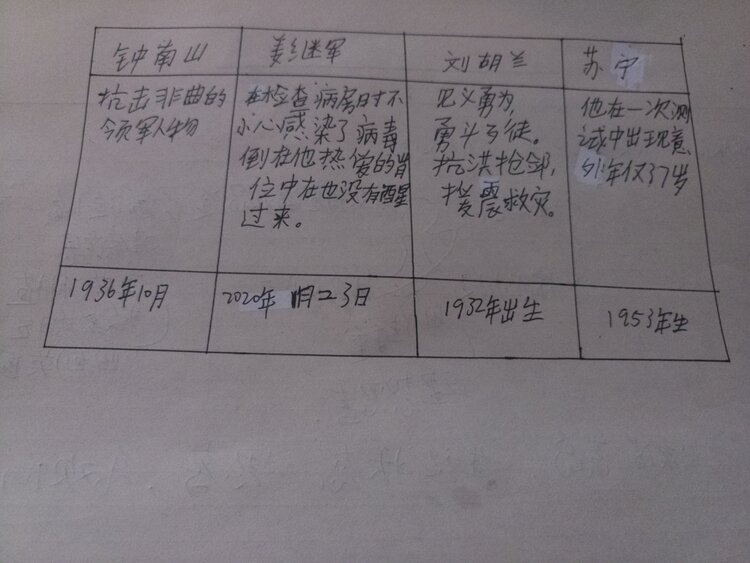 钟南山
姜继军
刘胡兰
苏宁
抗击非典的
领军人物
在检查病房时不
小心感染了病毒
倒在他热爱的岗
位中在也没有醒
过来。
见义勇为,
勇斗歹徒。
抗洪抢邻,
抗震救灾。
他在一次测
试中出现意
外年仅37岁
1936年10月
2020年 1月23日
1932年出生
1953年生